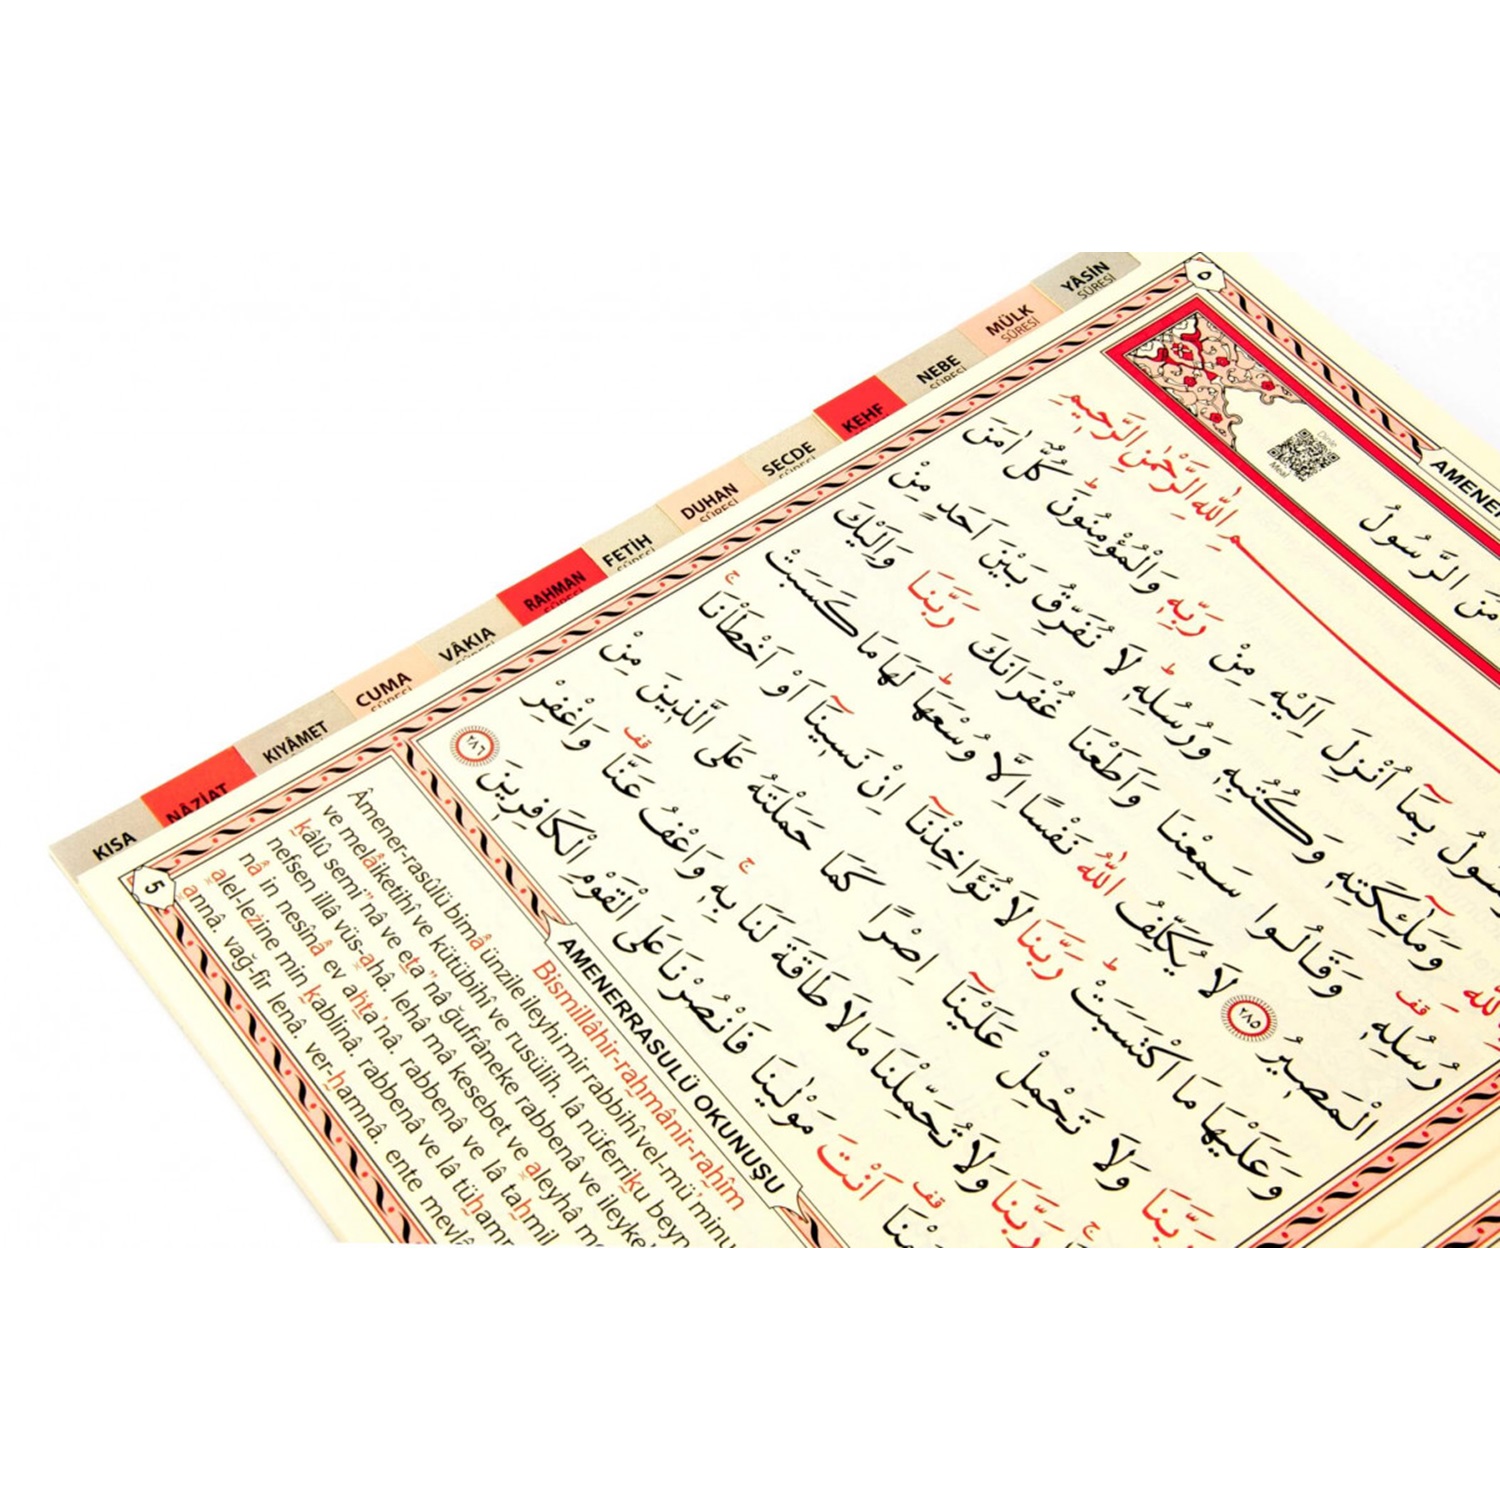 YÂSİN
SÛRESİ
MÜLK
SÛRESİ
NEBE
SÛRESİ
KEHF
SECDE
SÛRESİ
DUHAN
SÛRESİ
FETİH
SÛRESİ
RAHMAN
SÛRESİ
VÂKIA
SÛRESİ
CUMA
SÛRESİ
KIYÂMET
NÂZİAT
KISA
٥
Dinle
Meal
AMENER
مَنَ الرَّسُولُ
مِ اللّٰهِ الرَّحْمٰنِ الرَّح۪يمِ
سُولُ بِمَٓا اُنْزِلَ اِلَيْهِ مِنْ رَبِّه۪ وَالْمُؤْمِنُونَۜ كُلٌّ اٰمَنَ
للّٰهِ وَمَلٰٓئِكَتِه۪ وَكُتُبِه۪ وَرُسُلِه۪ۜ لَا نُفَرِّقُ بَيْنَ اَحَدٍ مِنْ
رُسُلِه۪ قف وَقَالُوا سَمِعْنَا وَاَطَعْنَا غُفْرَانَكَ رَبَّنَا وَاِلَيْكَ
الْمَص۪يرُ ٢٨٥ لَا يُكَلِّفُ اللّٰهُ نَفْسًا اِلَّا وُسْعَهَاۜ لَهَا مَا كَسَبَتْ
وَعَلَيْهَا مَا اكْتَسَبَتْۜ رَبَّنَا لَا تُؤَاخِذْنَٓا اِنْ نَس۪ينَٓا اَوْ اَخْطَأْنَاۚ
رَبَّنَا وَلَا تَحْمِلْ عَلَيْنَٓا اِصْرًا كَمَا حَمَلْتَهُ عَلَى الَّذ۪ينَ مِنْ
رَبَّنَا وَلَا تُحَمِّلْنَا مَا لَا طَاقَةَ لَنَا بِه۪ۚ وَاعْفُ عَنَّا قف وَاغْفِرْ
قف اَنْتَ مَوْلٰينَا فَانْصُرْنَا عَلَى الْقَوْمِ الْكَافِر۪ينَ ٢٨٦
5
AMENERRASULÜ OKUNUŞU
Bismillâhir-rahmânir-rahîm
Âmener-rasûlü bimâ ünzile ileyhi mir rabbihî vel-mü'minu
ve melâiketihî ve kütübihî ve rusülih. lâ nüferriku beyn
kâlû semi'nâ ve eta'nâ ğufrâneke rabbenâ ve ileyke
nefsen illâ vüs-ahâ. lehâ mâ kesebet ve aleyhâ m
nâ in nesînâ ev ahta'nâ. rabbenâ ve lâ tahmil
alel-lezine min kablinâ. rabbenâ ve lâ tühamm
annâ. vağ-fir lenâ. ver-hamnâ. ente mevlâ